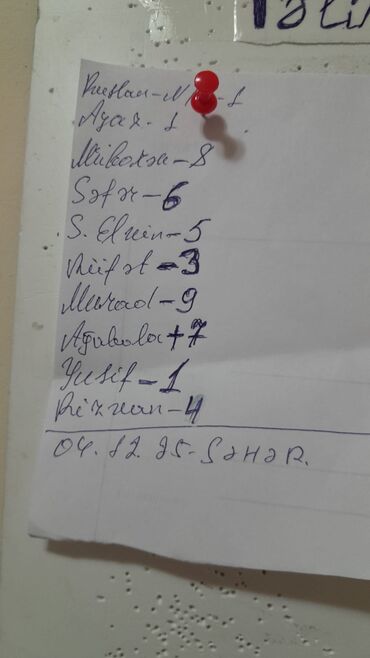 Ruslan-N -1
Ayaz-1
Mübariz-8
Səfər-6
S. Elvin-5
Rüfət-3
Murad-9
Ağabala+7
Yusif-1
Rizvan-4
04.12.25-SəHəR.